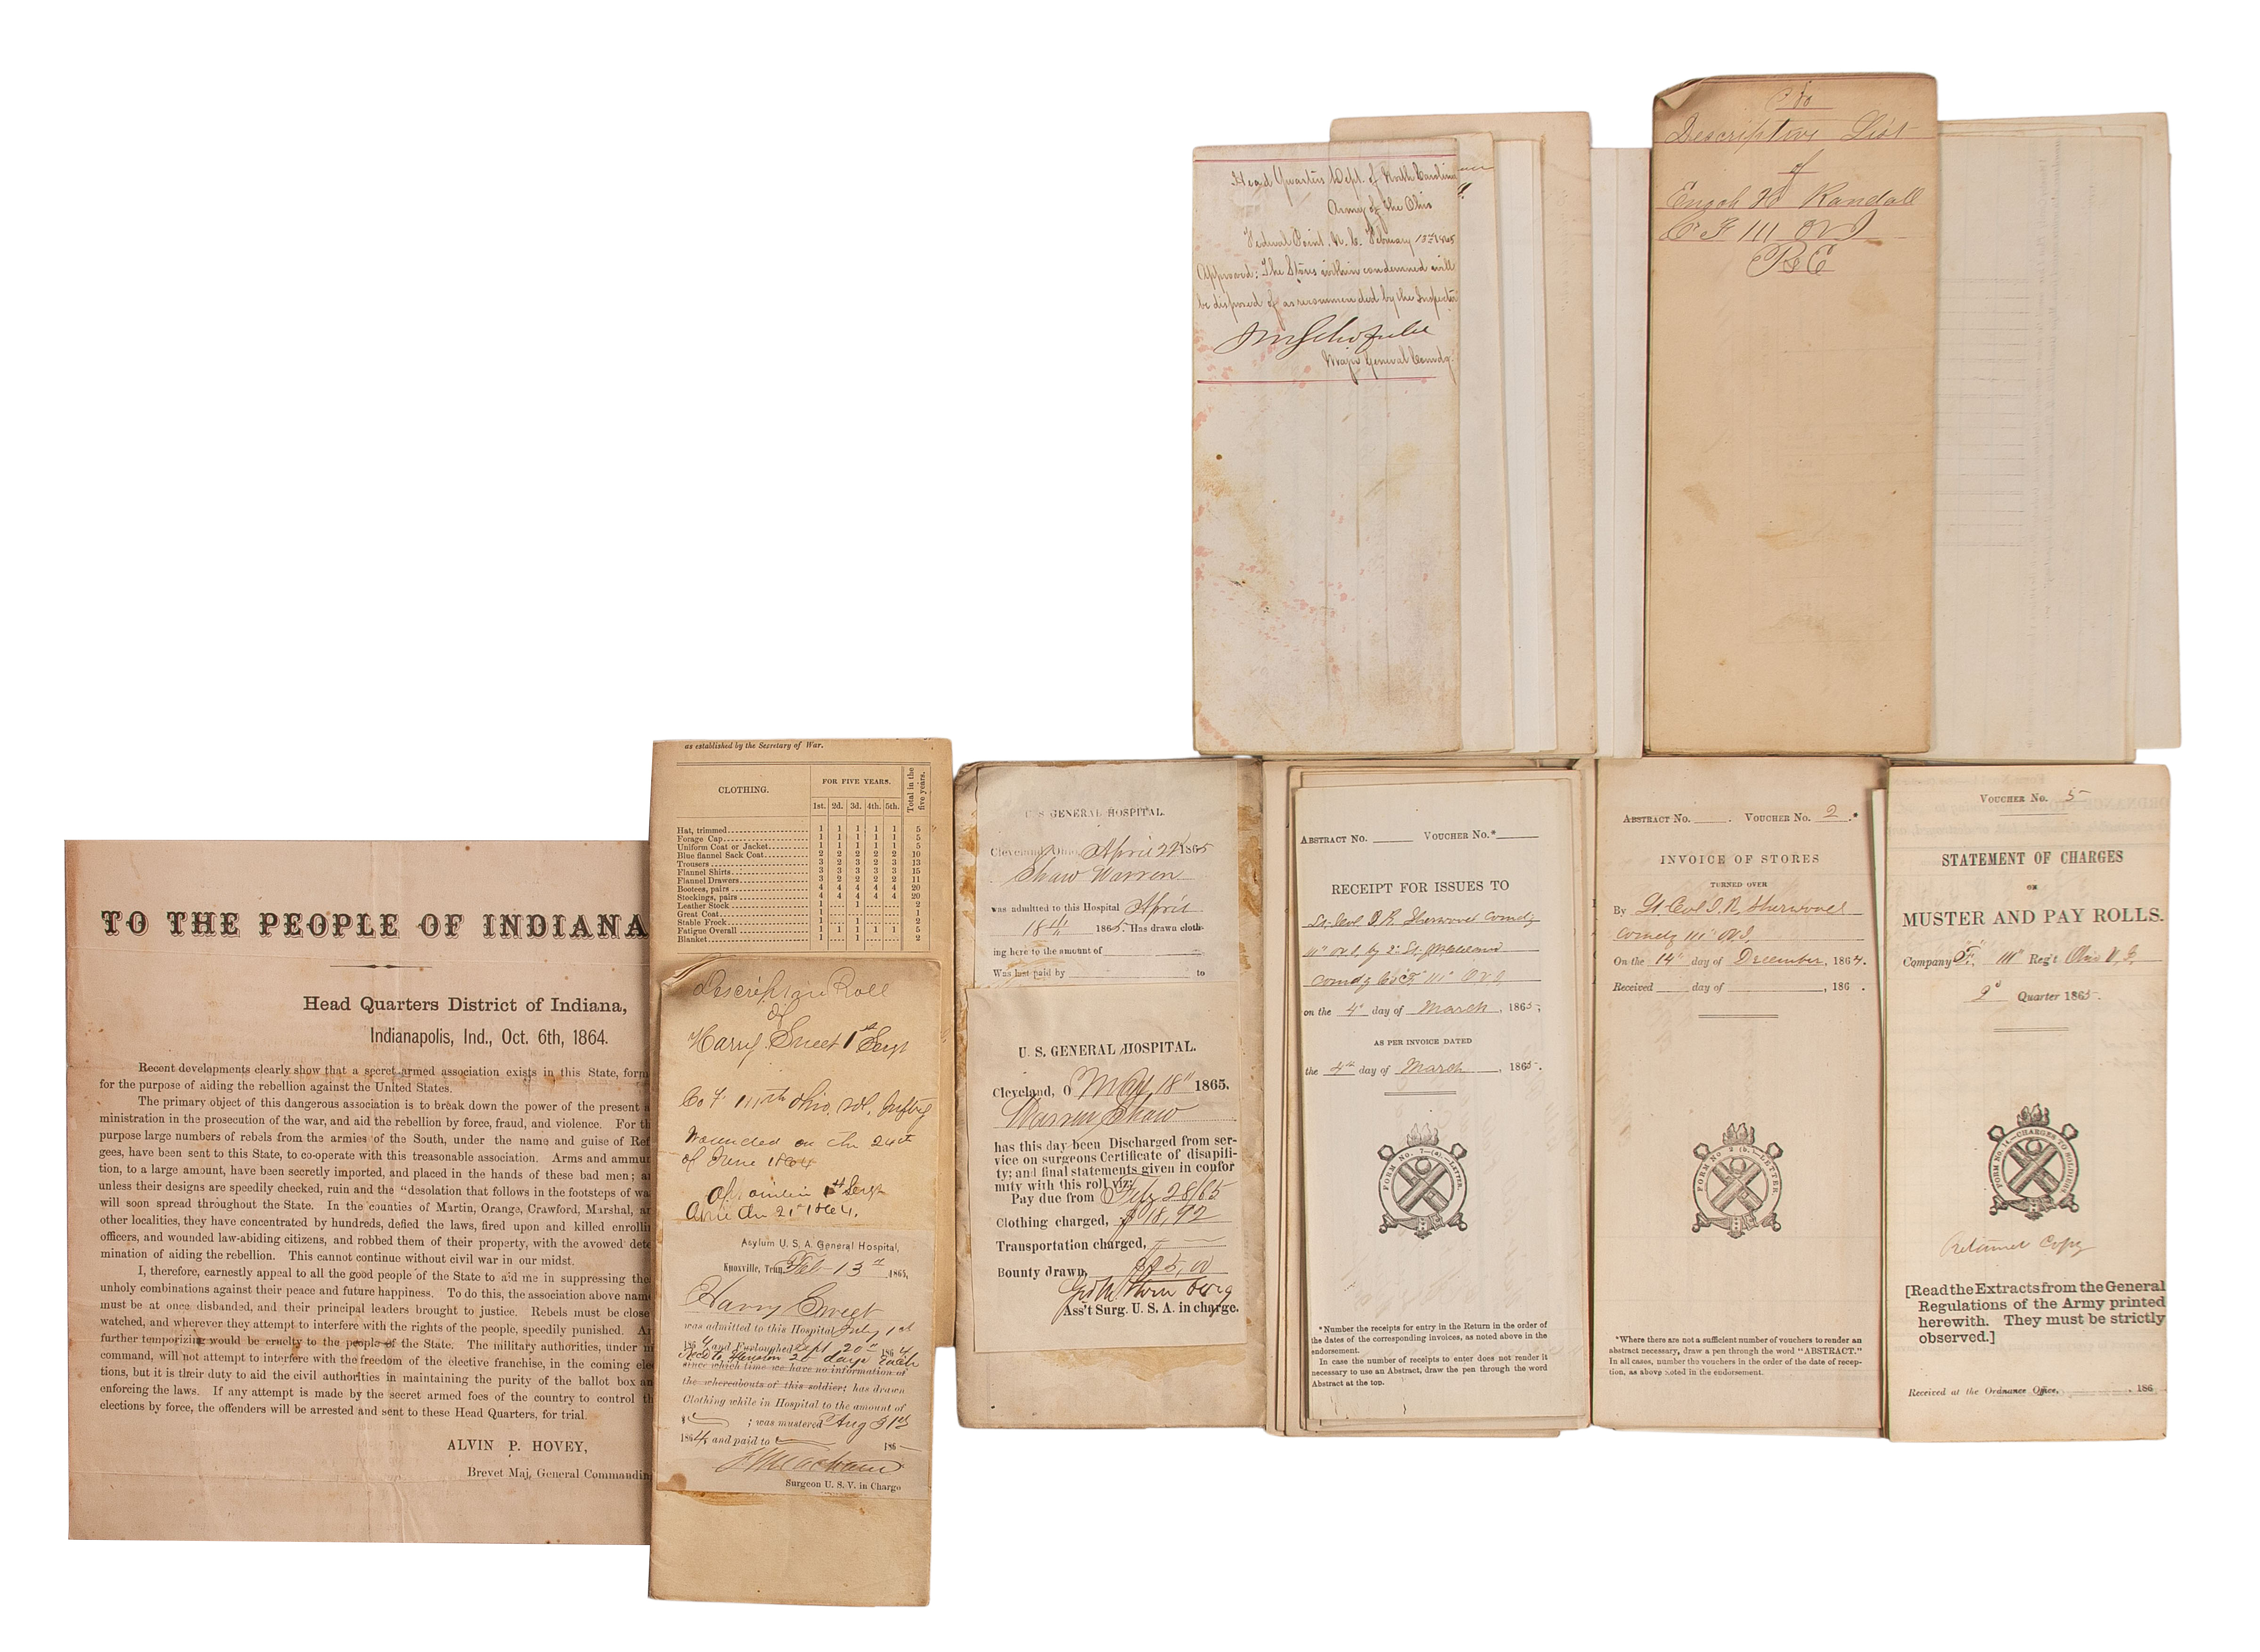 TO THE PEOPLE OF INDIANA
Head Quarters District of Indiana,
Indianapolis, Ind., Oct. 6th, 1864.
Recent developments clearly show that a secret armed association exists in this State, form
for the purpose of aiding the rebellion against the United States.
The primary object of this dangerous association is to break down the power of the present a
ministration in the prosecution of the war, and aid the rebellion by force, fraud, and violence. For th
purpose large numbers of rebels from the armies of the South, under the name and guise of Ref
gees, have been sent to this State, to co-operate with this treasonable association. Arms and ammun
tion, to a large amount, have been secretly imported, and placed in the hands of these bad men; a
unless their designs are speedily checked, ruin and the "desolation that follows in the footsteps of wa
will soon spread throughout the State. In the counties of Martin, Orange, Crawford, Marshal, an
other localities, they have concentrated by hundreds, defied the laws, fired upon and killed enrolli
officers, and wounded law-abiding citizens, and robbed them of their property, with the avowed dete
mination of aiding the rebellion. This cannot continue without civil war in our midst.
I, therefore, earnestly appeal to all the good people of the State to aid me in suppressing the
unholy combinations against their peace and future happiness. To do this, the association above name
must be at once disbanded, and their principal leaders brought to justice. Rebels must be close
watched, and wherever they attempt to interfere with the rights of the people, speedily punished. A
further temporizing would be cruelty to the people of the State. The military authorities, under m
command, will not attempt to interfere with the freedom of the elective franchise, in the coming ele
tions, but it is their duty to aid the civil authorities in maintaining the purity of the ballot box an
enforcing the laws. If any attempt is made by the secret armed foes of the country to control th
elections by force, the offenders will be arrested and sent to these Head Quarters, for trial.
ALVIN P. HOVEY,
Brevet Maj. General Commandin
as established by the Secretary of War.
CLOTHING.
FOR FIVE YEARS.
Total in the five years.
1st. 2d. 3d. 4th. 5th.
Hat, trimmed 1 1 1 1 1 5
Forage Cap 1 1 1 1 1 5
Uniform Coat or Jacket 1 1 1 1 1 5
Blue flannel Sack Coat 2 2 2 2 2 10
Trousers 3 2 3 2 3 13
Flannel Shirts 3 3 3 3 3 15
Flannel Drawers 3 2 2 2 2 11
Bootees, pairs 4 4 4 4 4 20
Stockings, pairs 4 4 4 4 4 20
Leather Stock 1 1 2
Great Coat 1 1
Stable Frock 1 1 2
Fatigue Overall 1 1 1 1 1 5
Blanket 1 1 2
Descriptive Roll
of
Harry Sweet 1st Sergt
Co F 111th Ohio Vol. Inftry
Wounded on the 24th
of June 1864
1st Sergt
21st 1864.
Asylum U. S. A. General Hospital,
Knoxville, Tenn. Feb 13th 1865.
Harry Sweet
was admitted to this Hospital July 1st
1864 and Furloughed Sept 20th 1864
20 days each
since which time we have no information of
the whereabouts of this soldier; has drawn
Clothing while in Hospital to the amount of
$ ; was mustered Aug 31st
1864 and paid to 186
Surgeon U. S. V. in Charge
U S GENERAL HOSPITAL.
Cleveland, Ohio, April 22 1865
Shaw Warren
was admitted to this Hospital April
18th 1865. Has drawn cloth-
ing here to the amount of
Was last paid by to
U. S. GENERAL HOSPITAL.
Cleveland, O May 18" 1865.
Warren Shaw
has this day been Discharged from ser-
vice on surgeons Certificate of disapili-
ty; and final statements given in confor
mity with this roll viz:
Pay due from Feby 28/65
Clothing charged, $18,92
Transportation charged,
Bounty drawn, $25,00
Ass't Surg. U. S. A. in charge.
Head Quarters Dept. of North Carolina
Army of the Ohio
Federal Point, N. C. February 13th 1865
Approved: The Stores within condemned will
be disposed of as recommended by the Inspector
JM Schofield
Major General Comdg.
Descriptive List
of
Enoch Randall
Co F 111 OVI
ABSTRACT No. VOUCHER No.*
RECEIPT FOR ISSUES TO
Lt. Col I. R. Sherwood Comdg
111" O.V.I. by 2" Lt.
Comdg Co "F" 111" O.V.I.
on the 4" day of March, 1865;
AS PER INVOICE DATED
the 4th day of March, 1865.
FORM No. 7—(a).—LETTER.
*Number the receipts for entry in the Return in the order of
the dates of the corresponding invoices, as noted above in the
endorsement.
In case the number of receipts to enter does not render it
necessary to use an Abstract, draw the pen through the word
Abstract at the top.
ABSTRACT No. VOUCHER No. 2.*
INVOICE OF STORES
TURNED OVER
By Lt. Col I. R. Sherwood
Comdg 111" OVI
On the 14" day of December, 1864.
Received day of , 186 .
FORM No. 2 (b.)—LETTER.
*Where there are not a sufficient number of vouchers to render an
abstract necessary, draw a pen through the word "ABSTRACT."
In all cases, number the vouchers in the order of the date of recep-
tion, as above noted in the endorsement.
VOUCHER No. 5
STATEMENT OF CHARGES
ON
MUSTER AND PAY ROLLS.
Company "F," 111" Reg't Ohio V. I.
2d Quarter 1865.
FORM No. 14.—CHARGES TO SOLDIERS
Retained Copy
[Read the Extracts from the General
Regulations of the Army printed
herewith. They must be strictly
observed.]
Received at the Ordnance Office, , 186